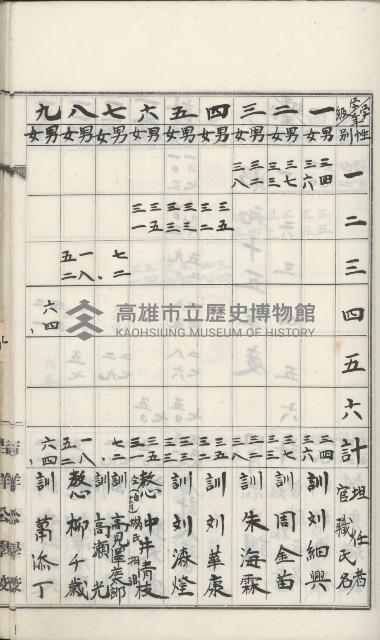 學年 性別 學級
一 二 三 四 五 六 計
担任者官職氏名
一 男 女
三四 三六
三四 三六
訓 刘細興
二 男 女
三七 三三
三七 三三
訓 周金苗
三 男 女
三二 三八
三二 三八
訓 朱海霖
四 男 女
三五 三二
三五 三二
訓 刘華康
五 男 女
三三 三三
三三 三三
訓 刘添燈
六 男 女
三五 三一
三五 三一
中井青枝
七 男 女
七二
七二
訓 高見澤英郎
訓 高瀬光
八 男 女
一八 五二
一八 五二
柳千歳
九 男 女
六四
六四
訓 萬添丁
高雄市立歷史博物館
KAOHSIUNG MUSEUM OF HISTORY